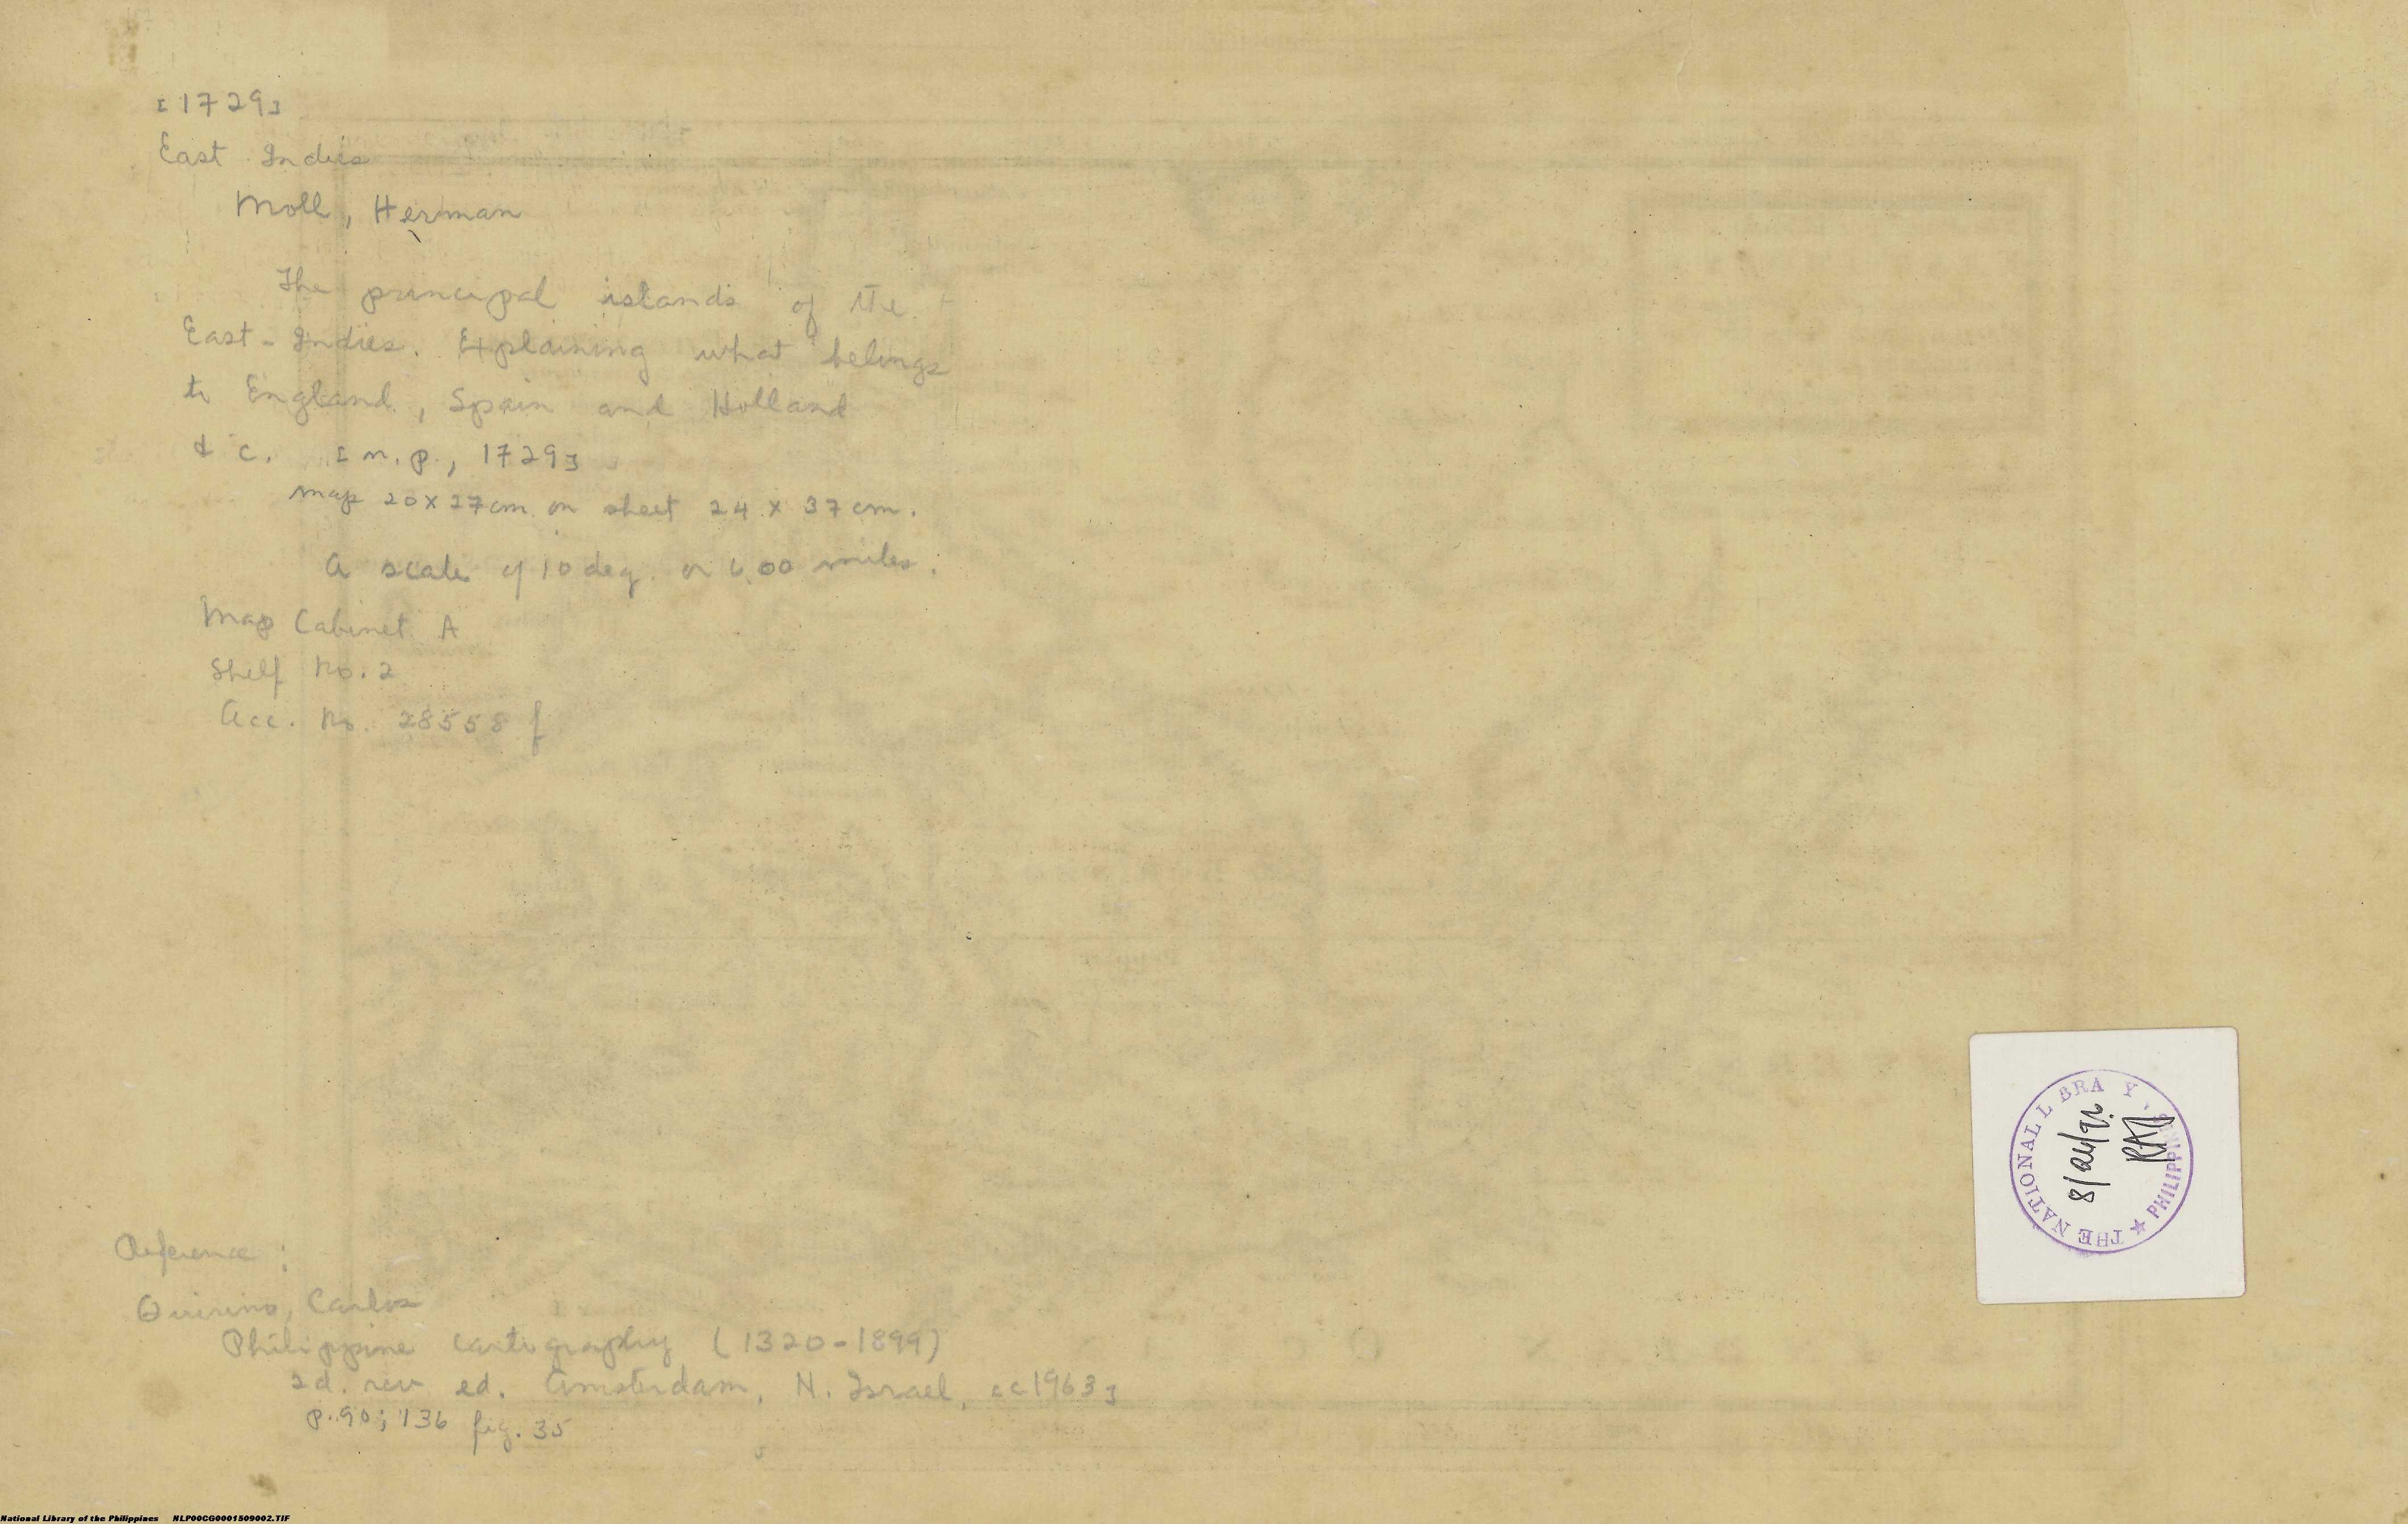 [1729]
East Indies
Moll, Herman
The principal islands of the
East-Indies. Explaining what belongs
to England, Spain and Holland
& c. [n.p., 1729]
map 20 x 27 cm. on sheet 24 x 37 cm.
A scale of 10 deg. or 600 miles.
Map Cabinet A
Shelf No. 2
Acc. No. 28558 f
THE NATIONAL L BRA Y
PHILIPPINES
Reference :
Quirino, Carlos
Philippine cartography (1320-1899)
2d. rev ed. Amsterdam, N. Israel, [c1963]
p. 90; 136 fig. 35
National Library of the Philippines NLP00CG0001509002.TIF